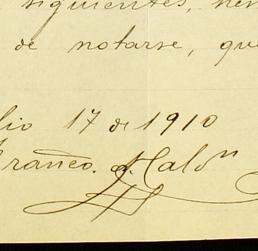 siguientes, her
de notarse, que
lio 17 de 1910
Franco. A. Calón